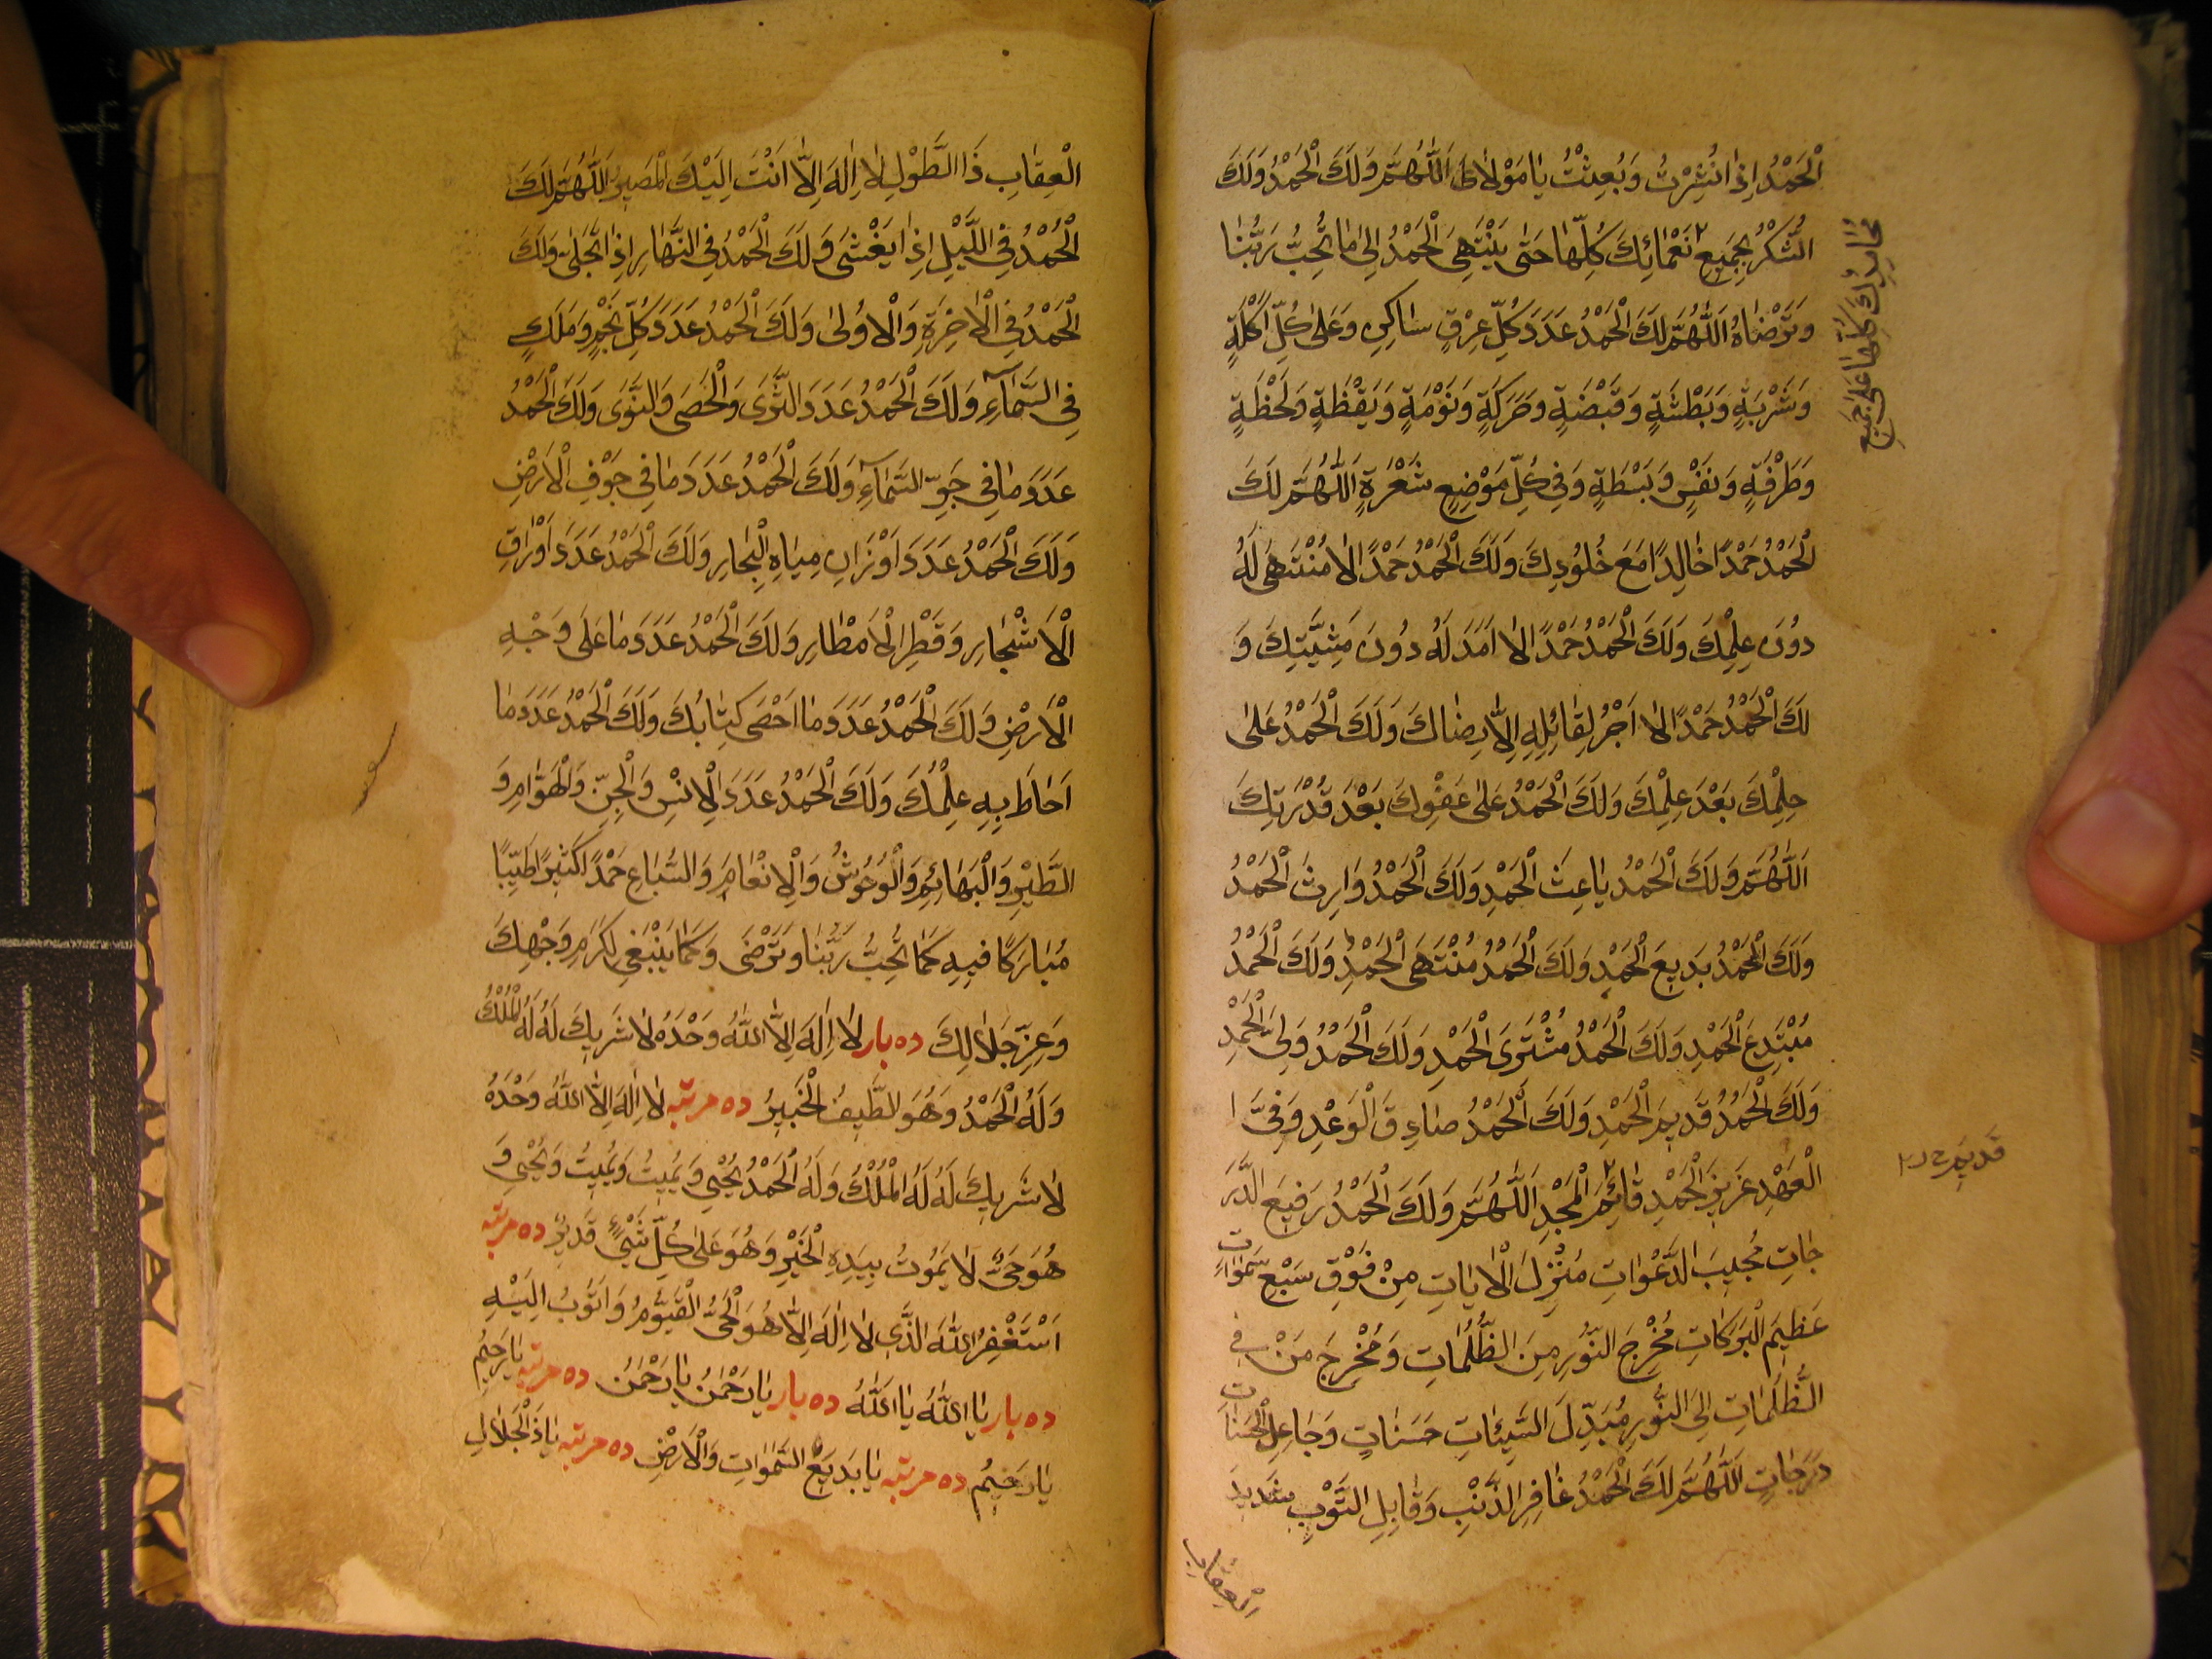 اَلْحَمْدُ اِذٰا اُنْشِرْتُ وَبُعِثْتُ يٰا مَوْلاٰىَ اَللّٰهُمَّ وَلَكَ الْحَمْدُ وَلَكَ
الشُّكْرُ بِجَمِيعِ نَعْمٰائِكَ كُلِّهٰا حَتّٰى يَنْتَهِىَ الْحَمْدُ اِلىٰ مٰا تُحِبُّ رَبَّنٰا
مَحٰامِدِكَ كُلِّهٰا عَلىٰ جَمِيعِ
وَتَرْضٰاهُ اَللّٰهُمَّ لَكَ الْحَمْدُ عَدَدَ كُلِّ عِرْقٍ سٰاكِنٍ وَعَلىٰ كُلِّ اَكْلَةٍ
وَشَرْبَةٍ وَبَطْشَةٍ وَقَبْضَةٍ وَحَرَكَةٍ وَنَوْمَةٍ وَيَقْظَةٍ وَلَحْظَةٍ
وَطَرْفَةٍ وَنَفَسٍ وَبَسْطَةٍ وَفِى كُلِّ مَوْضِعِ شَعْرَةٍ اَللّٰهُمَّ لَكَ
الْحَمْدُ حَمْدًا خٰالِدًا مَعَ خُلُودِكَ وَلَكَ الْحَمْدُ حَمْدًا لاٰ مُنْتَهىٰ لَهُ
دُونَ عِلْمِكَ وَلَكَ الْحَمْدُ حَمْدًا لاٰ اَمَدَ لَهُ دُونَ مَشِيَّتِكَ وَ
لَكَ الْحَمْدُ حَمْدًا لاٰ اَجْرَ لِقٰائِلِهِ اِلاّٰ رِضٰاكَ وَلَكَ الْحَمْدُ عَلىٰ
حِلْمِكَ بَعْدَ عِلْمِكَ وَلَكَ الْحَمْدُ عَلىٰ عَفْوِكَ بَعْدَ قُدْرَتِكَ
اَللّٰهُمَّ وَلَكَ الْحَمْدُ بٰاعِثَ الْحَمْدِ وَلَكَ الْحَمْدُ وٰارِثَ الْحَمْدُ
وَلَكَ الْحَمْدُ بَدِيعَ الْحَمْدِ وَلَكَ الْحَمْدُ مُنْتَهَى الْحَمْدِ وَلَكَ الْحَمْدُ
مُبْتَدِعَ الْحَمْدِ وَلَكَ الْحَمْدُ مُشْتَرَى الْحَمْدِ وَلَكَ الْحَمْدُ وَلِىَّ الْحَمْدِ
وَلَكَ الْحَمْدُ قَدِيمَ الْحَمْدِ وَلَكَ الْحَمْدُ صٰادِقَ الْوَعْدِ وَفِىَّ ا
الْعَهْدِ عَزِيزَ الْحَمْدِ قٰائِمَ الْمَجْدِ اَللّٰهُمَّ وَلَكَ الْحَمْدُ رَفِيعَ الدَّرَ
جٰاتِ مُجِيبَ الدَّعَوٰاتِ مُنْزِلَ الْاٰيٰاتِ مِنْ فَوْقِ سَبْعِ سَمٰوٰاتٍ
عَظِيمَ الْبَرَكٰاتِ مُخْرِجَ النُّورِ مِنَ الظُّلُمٰاتِ وَمُخْرِجَ مَنْ فِى
الظُّلُمٰاتِ اِلَى النُّورِ مُبَدِّلَ السَّيِّئٰاتِ حَسَنٰاتٍ وَجٰاعِلَ الْحَسَنٰاتِ
دَرَجٰاتٍ اَللّٰهُمَّ لَكَ الْحَمْدُ غٰافِرَ الذَّنْبِ وَقٰابِلَ التَّوْبِ شَدِيدَ
الْعِقٰابِ
الْعِقٰابِ ذَا الطَّوْلِ لاٰ اِلٰهَ اِلاّٰ اَنْتَ اِلَيْكَ الْمَصِيرُ اَللّٰهُمَّ لَكَ
الْحَمْدُ فِى اللَّيْلِ اِذٰا يَغْشىٰ وَلَكَ الْحَمْدُ فِى النَّهٰارِ اِذٰا تَجَلّىٰ وَلَكَ
الْحَمْدُ فِى الْاٰخِرَةِ وَالْاُولىٰ وَلَكَ الْحَمْدُ عَدَدَ كُلِّ نَجْمٍ وَمَلَكٍ
فِى السَّمٰآءِ وَلَكَ الْحَمْدُ عَدَدَ الثَّرىٰ وَالْحَصىٰ وَالنَّوىٰ وَلَكَ الْحَمْدُ
عَدَدَ مٰا فِى جَوِّ السَّمٰآءِ وَلَكَ الْحَمْدُ عَدَدَ مٰا فِى جَوْفِ الْاَرْضِ
وَلَكَ الْحَمْدُ عَدَدَ اَوْزٰانِ مِيٰاهِ الْبِحٰارِ وَلَكَ الْحَمْدُ عَدَدَ اَوْرٰاقِ
الْاَشْجٰارِ وَقَطْرِ الْاَمْطٰارِ وَلَكَ الْحَمْدُ عَدَدَ مٰا عَلىٰ وَجْهِ
الْاَرْضِ وَلَكَ الْحَمْدُ عَدَدَ مٰا اَحْصىٰ كِتٰابُكَ وَلَكَ الْحَمْدُ عَدَدَ مٰا
اَحٰاطَ بِهِ عِلْمُكَ وَلَكَ الْحَمْدُ عَدَدَ الْاِنْسِ وَالْجِنِّ وَالْهَوٰامِّ وَ
الطَّيْرِ وَالْبَهٰائِمِ وَالْوُحُوشِ وَالْاَنْعٰامِ وَالسِّبٰاعِ حَمْدًا كَثِيرًا طَيِّبًا
مُبٰارَكًا فِيهِ كَمٰا تُحِبُّ رَبَّنٰا وَتَرْضىٰ وَكَمٰا يَنْبَغِى لِكَرَمِ وَجْهِكَ
وَعِزِّ جَلاٰلِكَ ده بار لاٰ اِلٰهَ اِلاَّ اللّٰهُ وَحْدَهُ لاٰ شَرِيكَ لَهُ لَهُ الْمُلْكُ
وَلَهُ الْحَمْدُ وَهُوَ اللَّطِيفُ الْخَبِيرُ ده مرتبه لاٰ اِلٰهَ اِلاَّ اللّٰهُ وَحْدَهُ
لاٰ شَرِيكَ لَهُ لَهُ الْمُلْكُ وَلَهُ الْحَمْدُ يُحْيِى وَيُمِيتُ وَيُمِيتُ وَيُحْيِى وَ
هُوَ حَىٌّ لاٰ يَمُوتُ بِيَدِهِ الْخَيْرُ وَهُوَ عَلىٰ كُلِّ شَىْءٍ قَدِيرٌ ده مرتبه
اَسْتَغْفِرُ اللّٰهَ الَّذِى لاٰ اِلٰهَ اِلاّٰ هُوَ الْحَىُّ الْقَيُّومُ وَاَتُوبُ اِلَيْهِ
ده بار يٰا اَللّٰهُ يٰا اَللّٰهُ ده بار يٰا رَحْمٰنُ يٰا رَحْمٰنُ ده مرتبه يٰا رَحِيمُ
يٰا رَحِيمُ ده مرتبه يٰا بَدِيعَ السَّمٰوٰاتِ وَالْاَرْضِ ده مرتبه يٰا ذَا الْجَلاٰلِ